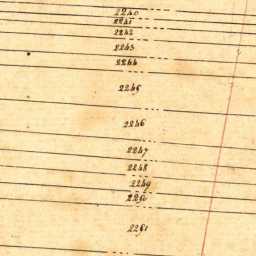 2240
2241
2242
2243
2244
2245
2246
2247
2248
2249
2250
2251